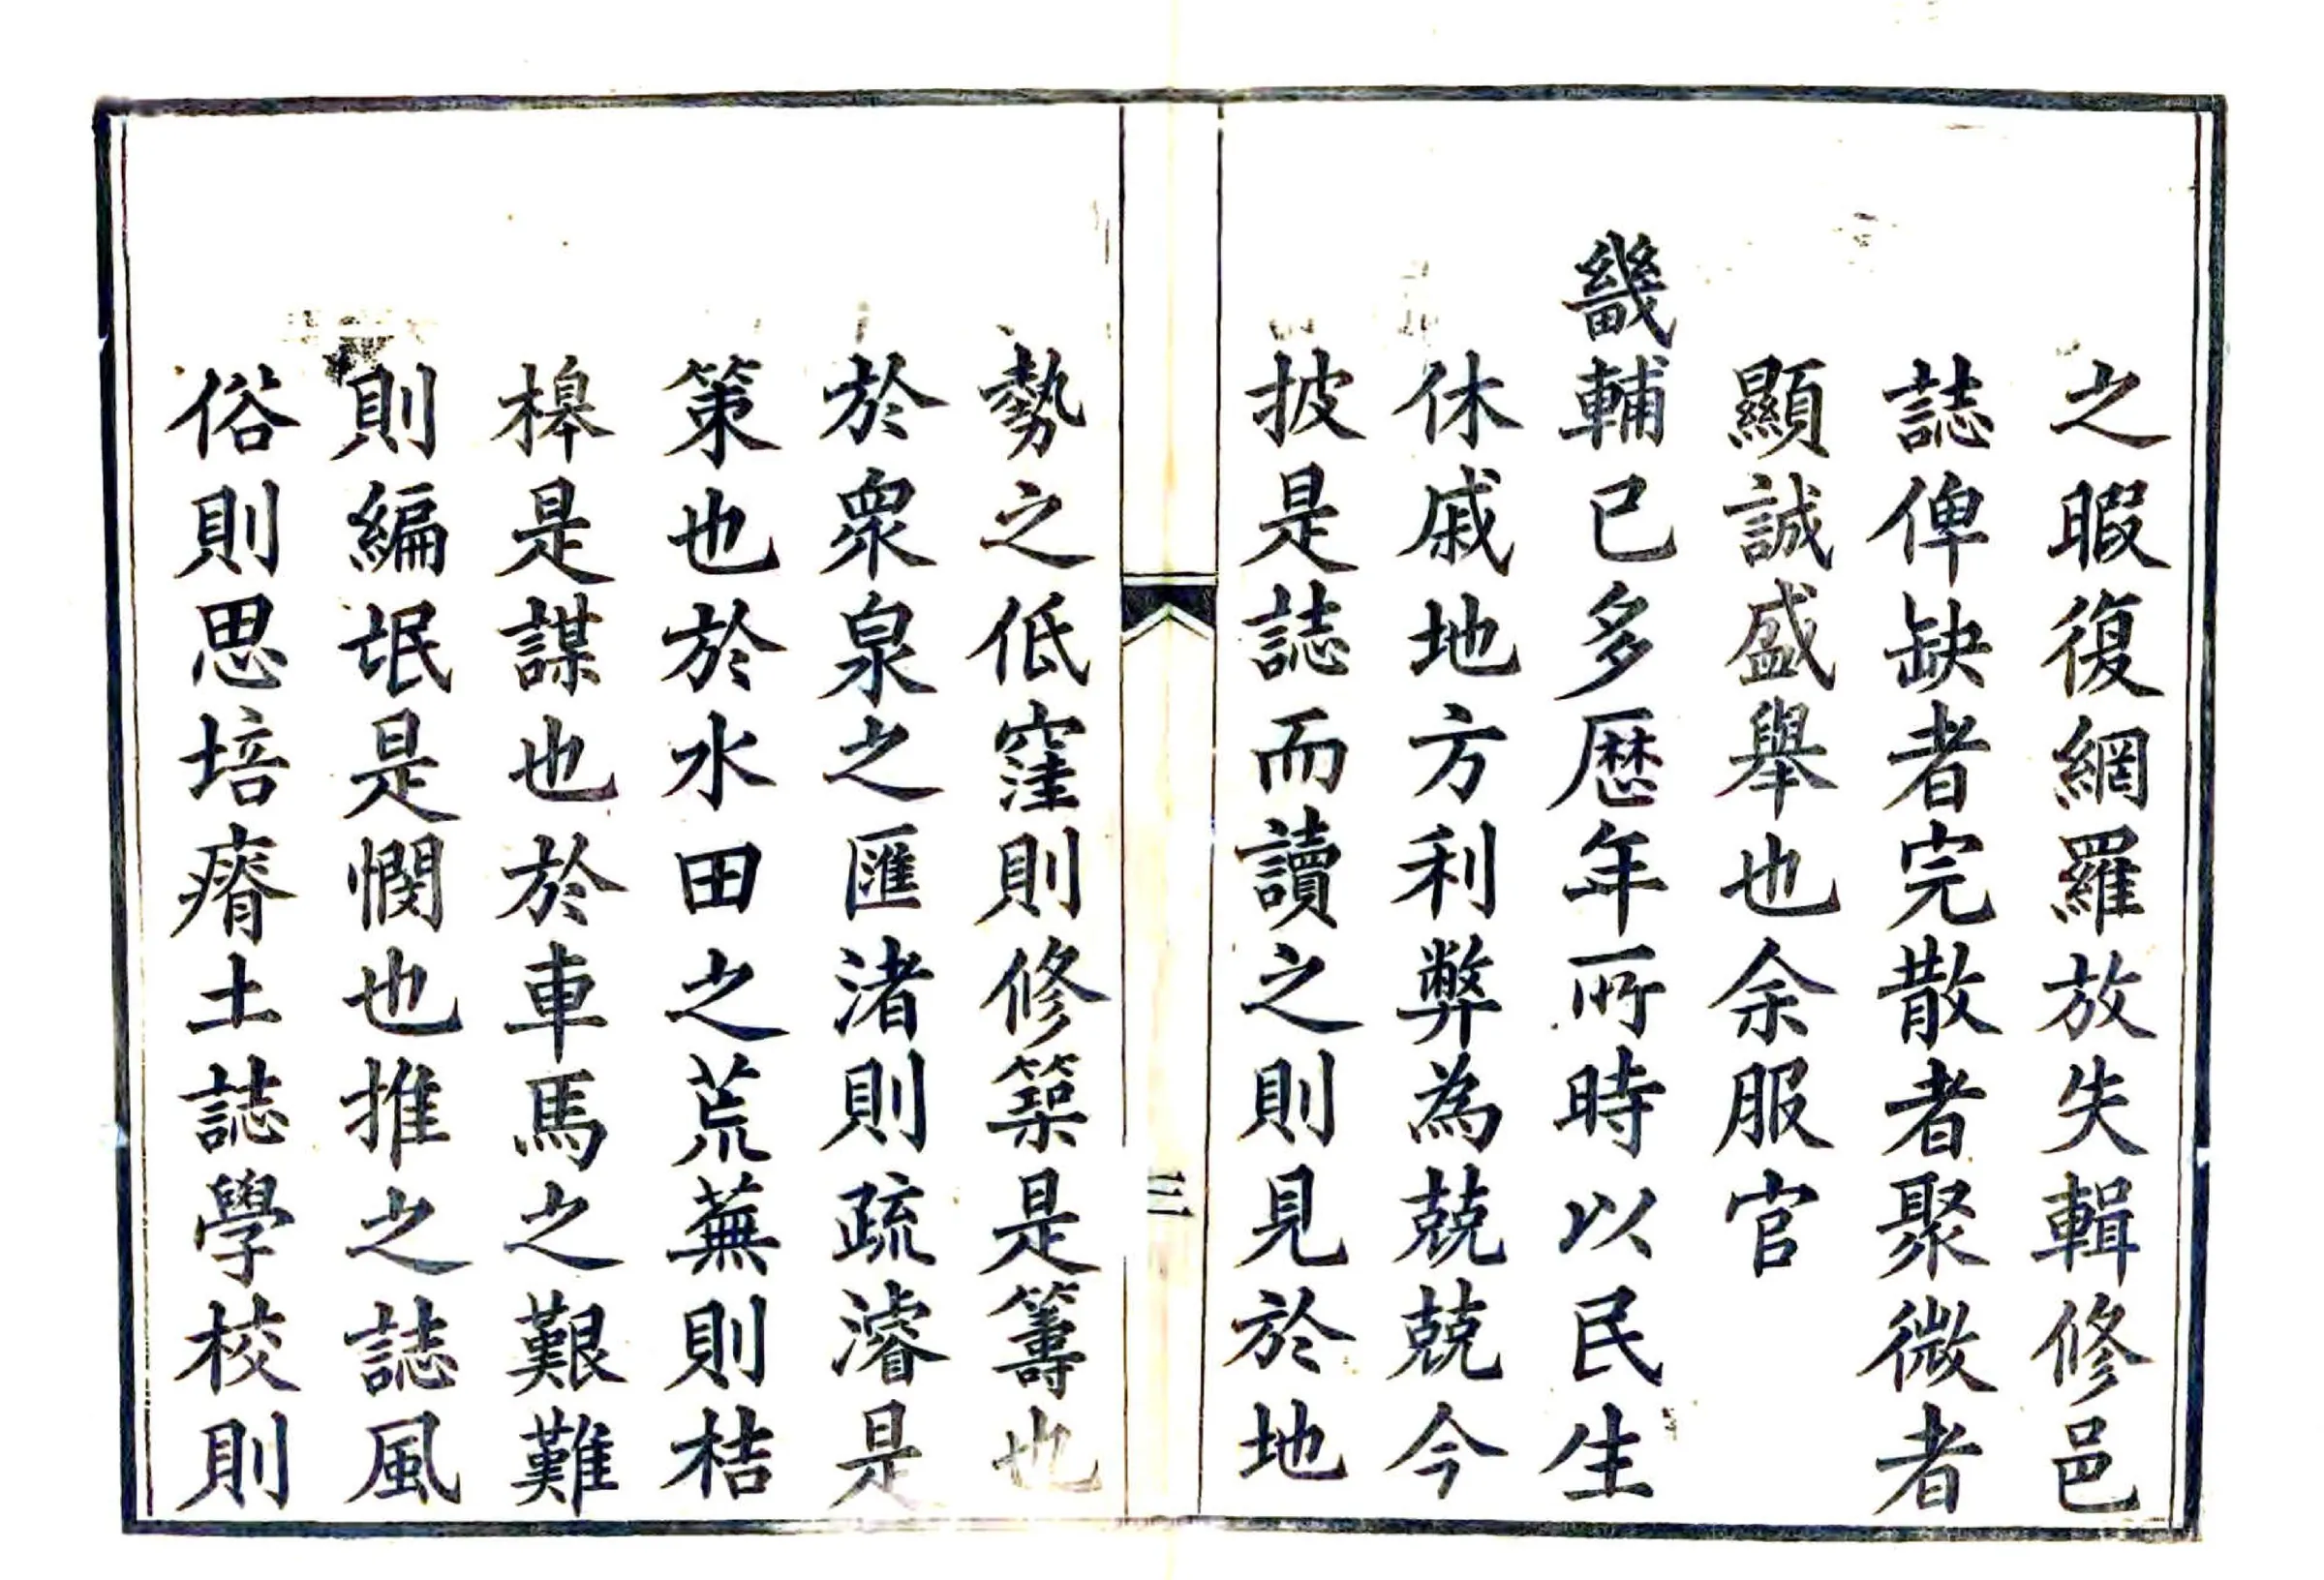 之暇復網羅放失輯修邑
誌俾缺者完散者聚微者
顯誠盛舉也余服官
畿輔已多歴年所時以民生
休戚地方利弊為兢兢今
披是誌而讀之則見於地
三
勢之低窪則修築是籌也
於衆泉之匯渚則疏濬是
策也於水田之荒蕪則桔
槹是謀也於車馬之艱難
則編氓是憫也推之誌風
俗則思培瘠土誌學校則